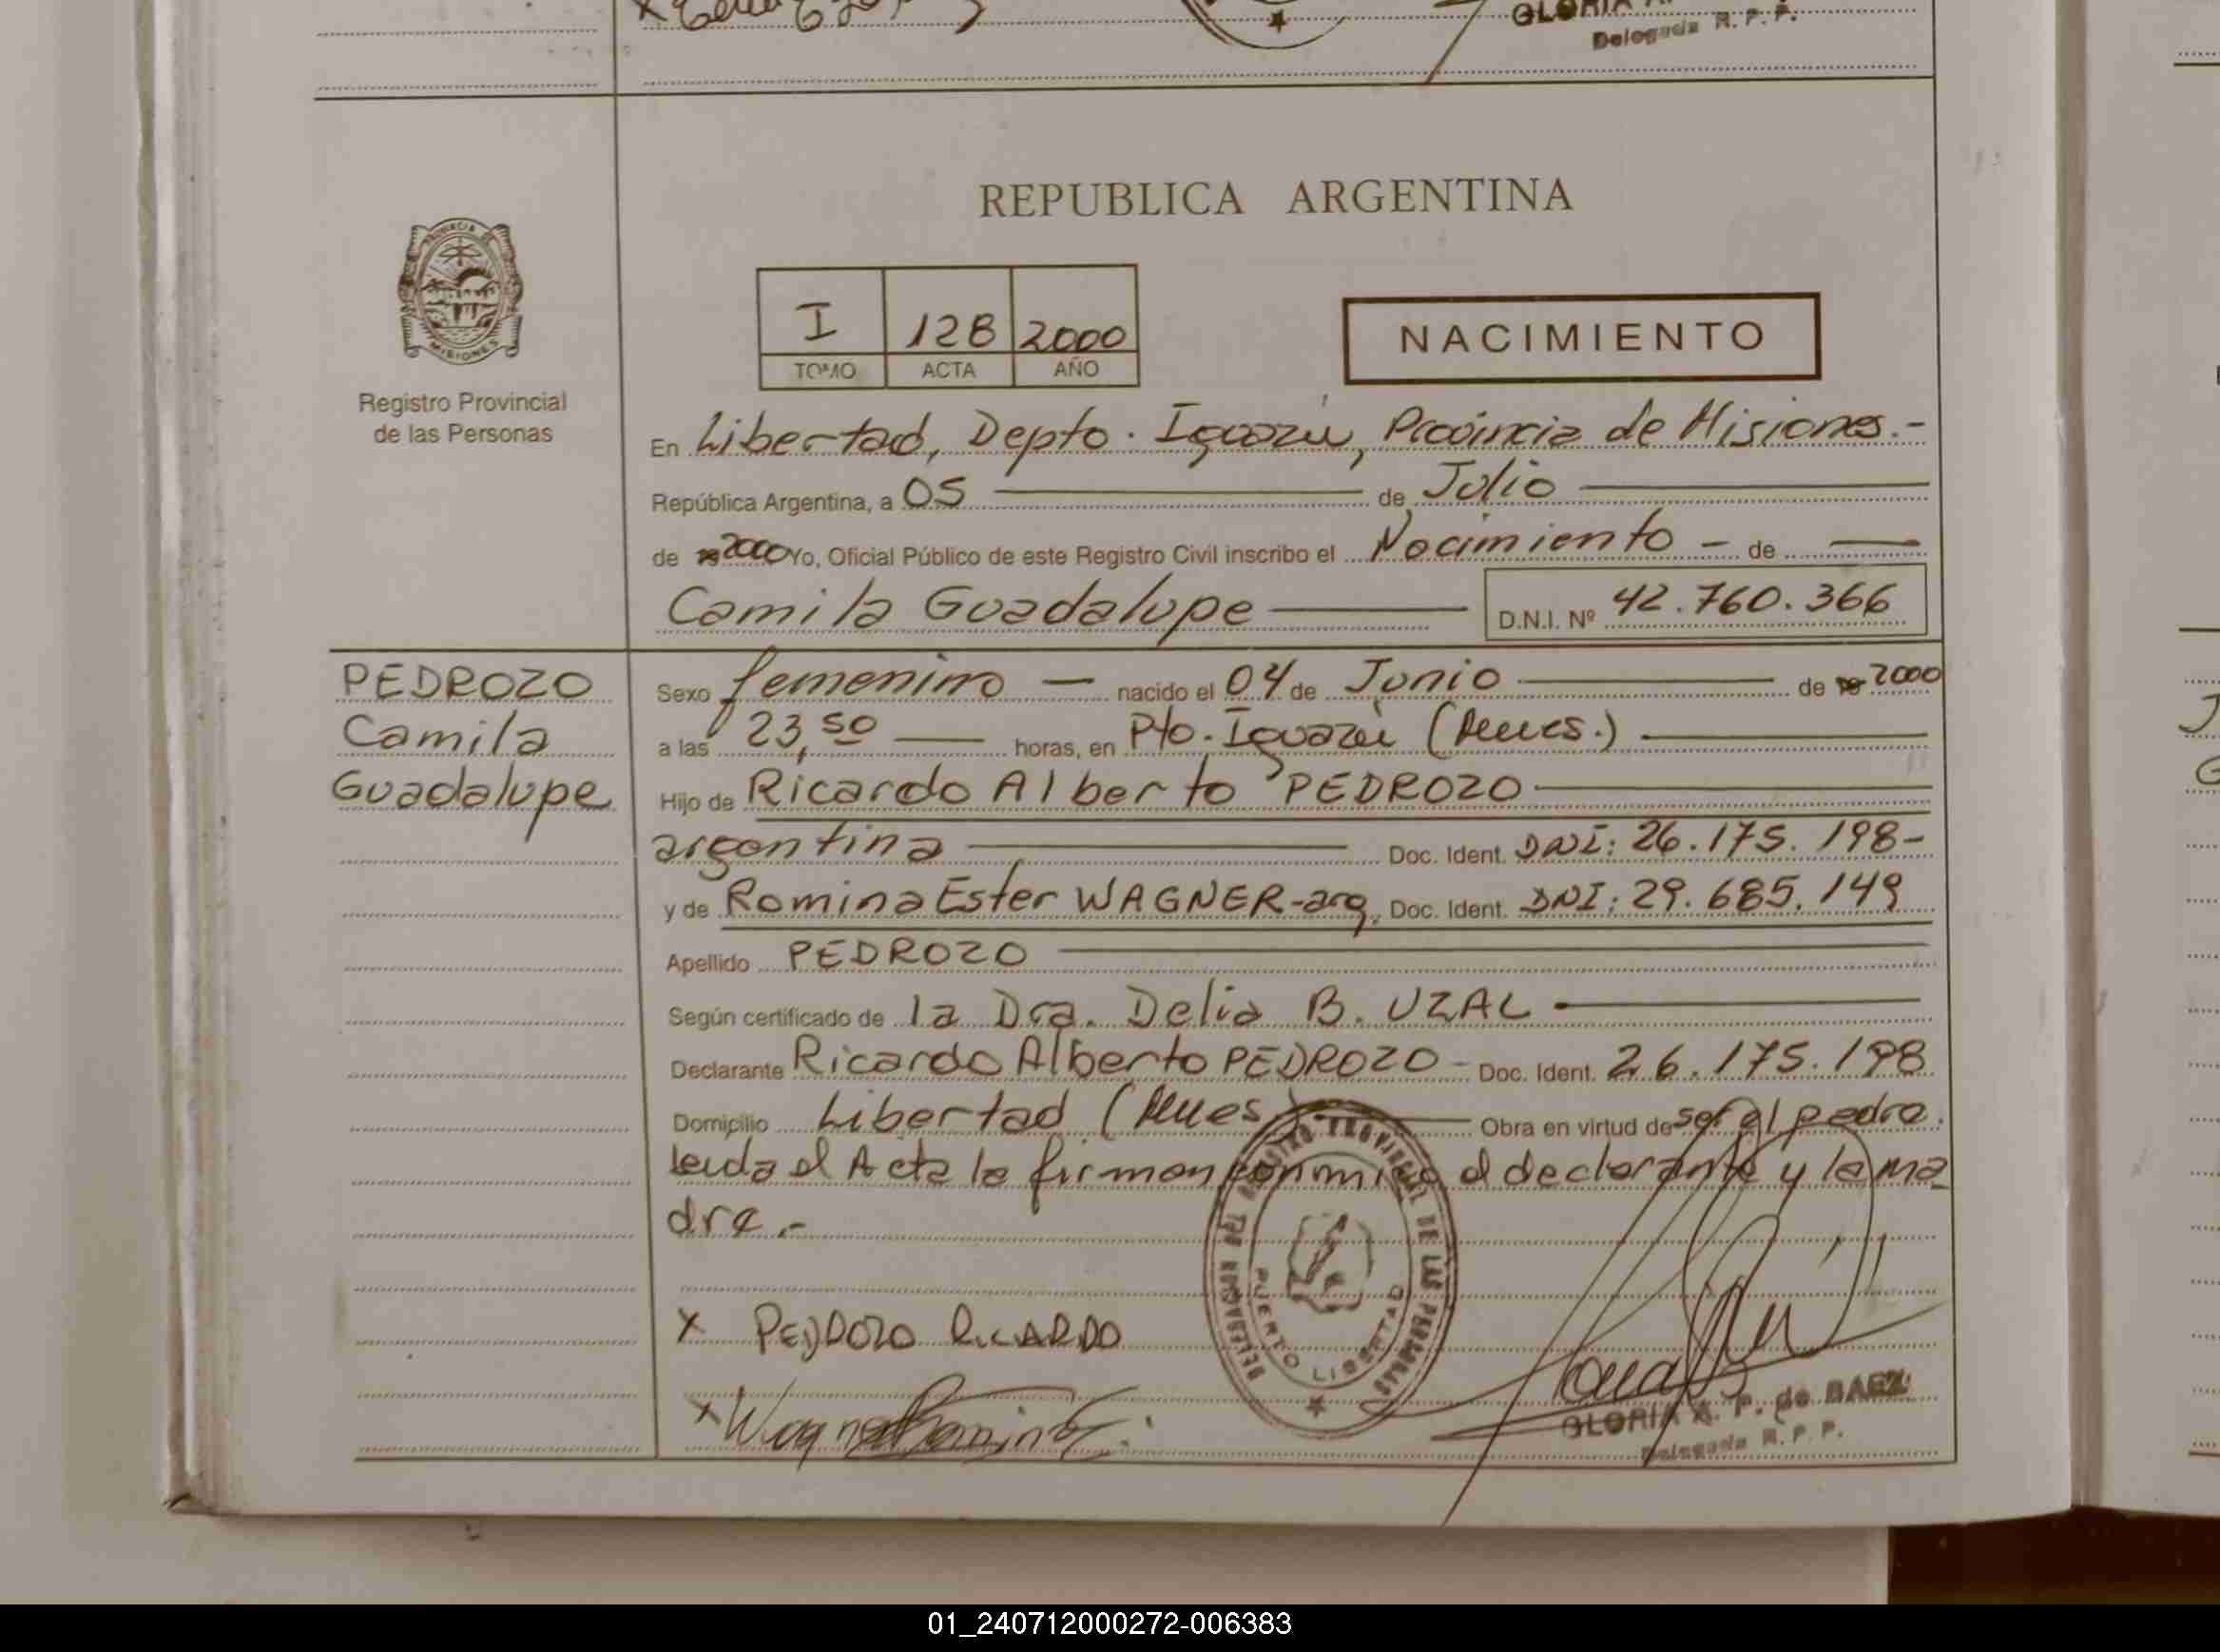 GLORIA A.
Delegada R. P. P.
REPUBLICA ARGENTINA
PROVINCIA DE
MISIONES
Registro Provincial
de las Personas
I 128 2000
TOMO ACTA AÑO
NACIMIENTO
En Libertad, Depto. Iguazú, Provincia de Misiones.-
República Argentina, a 05 de Julio
de 2000 Yo, Oficial Público de este Registro Civil inscribo el Nacimiento - de
Camila Guadalupe D.N.I. Nº 42.760.366
PEDROZO
Camila
Guadalupe
Sexo femenino nacido el 04 de Junio de 2000
a las 23,50 horas, en Pto. Iguazú (Mnes.)
Hijo de Ricardo Alberto PEDROZO
argentina Doc. Ident. DNI: 26.175.198-
y de Romina Ester WAGNER-arg. Doc. Ident. DNI: 29.685.149
Apellido PEDROZO
Según certificado de la Dra. Delia B. UZAL
Declarante Ricardo Alberto PEDROZO - Doc. Ident. 26.175.198
Domicilio Libertad (Mnes.) Obra en virtud de ser el padre.
Leida el Acta la firman conmigo el declarante y la ma
dre.-
DELEGACION DEL REGISTRO PROVINCIAL DE LAS PERSONAS
PUERTO LIBERTAD
X PEDROZO RICARDO
x Wagner Romina
GLORIA A. P. de BAEZ
Delegada R. P. P.
01_240712000272-006383